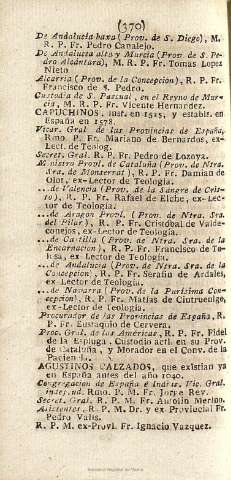 (370)
De Andalucia baxa (Prov. de S. Diego), M.
R. P. Fr. Pedro Canalejo.
De Andalucia alta y Murcia (Prov. de S. Pe-
dro Alcántara), M. R. P. Fr. Tomas Lopez
Nieto.
Alcarria (Prov. de la Concepcion), R. P. Fr.
Francisco de S. Pedro.
Custodia de S. Pasqual, en el Reyno de Mur-
cia, M. R. P. Fr. Vicente Hernandez.
CAPUCHINOS, inst. en 1525, y establec. en
España en 1578.
Vicar. Gral. de las Provincias de España,
Rmo. P. Fr. Mariano de Bernardos, ex-
Lect. de Teolog.
Secret. Gral. R. P. Fr. Pedro de Lozoya.
Ministro Provl. de Cataluña (Prov. de Ntra.
Sra. de Monserrat), R. P. Fr. Damian de
Olot, ex-Lector de Teología.
...de Valencia (Prov. de la Sangre de Cris-
to), R. P. Fr. Rafael de Elche, ex-Lec-
tor de Teología.
...de Aragon Provl. (Prov. de Ntra. Sra.
del Pilar), R. P. Fr. Cristóbal de Valde-
conejos, ex-Lector de Teología.
...de Castilla (Prov. de Ntra. Sra. de la
Encarnacion), R. P. Fr. Francisco de
ex-Lector de Teología.
...de Andalucia (Prov. de Ntra. Sra. de la
Concepcion), R. P. Fr. Serafin de Ardales,
ex-Lector de Teología.
...de Navarra (Prov. de la Purísima Con-
cepcion), R. P. Fr. Matías de Cintruenigo,
ex-Lector de Teología.
Procurador de las Provincias de España, R.
P. Fr. Eustaquio de Cervera.
Proc. Gral. de las Américas, R. P. Fr. Fidel
de la Espluga, Custodio actl. en su Prov.
de Cataluña, y Morador en el Conv. de la
Pacien la.
AGUSTINOS CALZADOS, que existian ya
en España antes del año 1040.
Congregacion de España é Indias, Vic. Gral.
independ. Rmo. P. M. Fr. Jorge Rey.
Secret. Gral. R. P. M. Fr. Antolin Merino.
Asistentes, R. P. M. Dr. y ex-Provincial Fr.
Pedro Valls.
R. P. M. ex-Provl. Fr. Ignacio Vazquez.